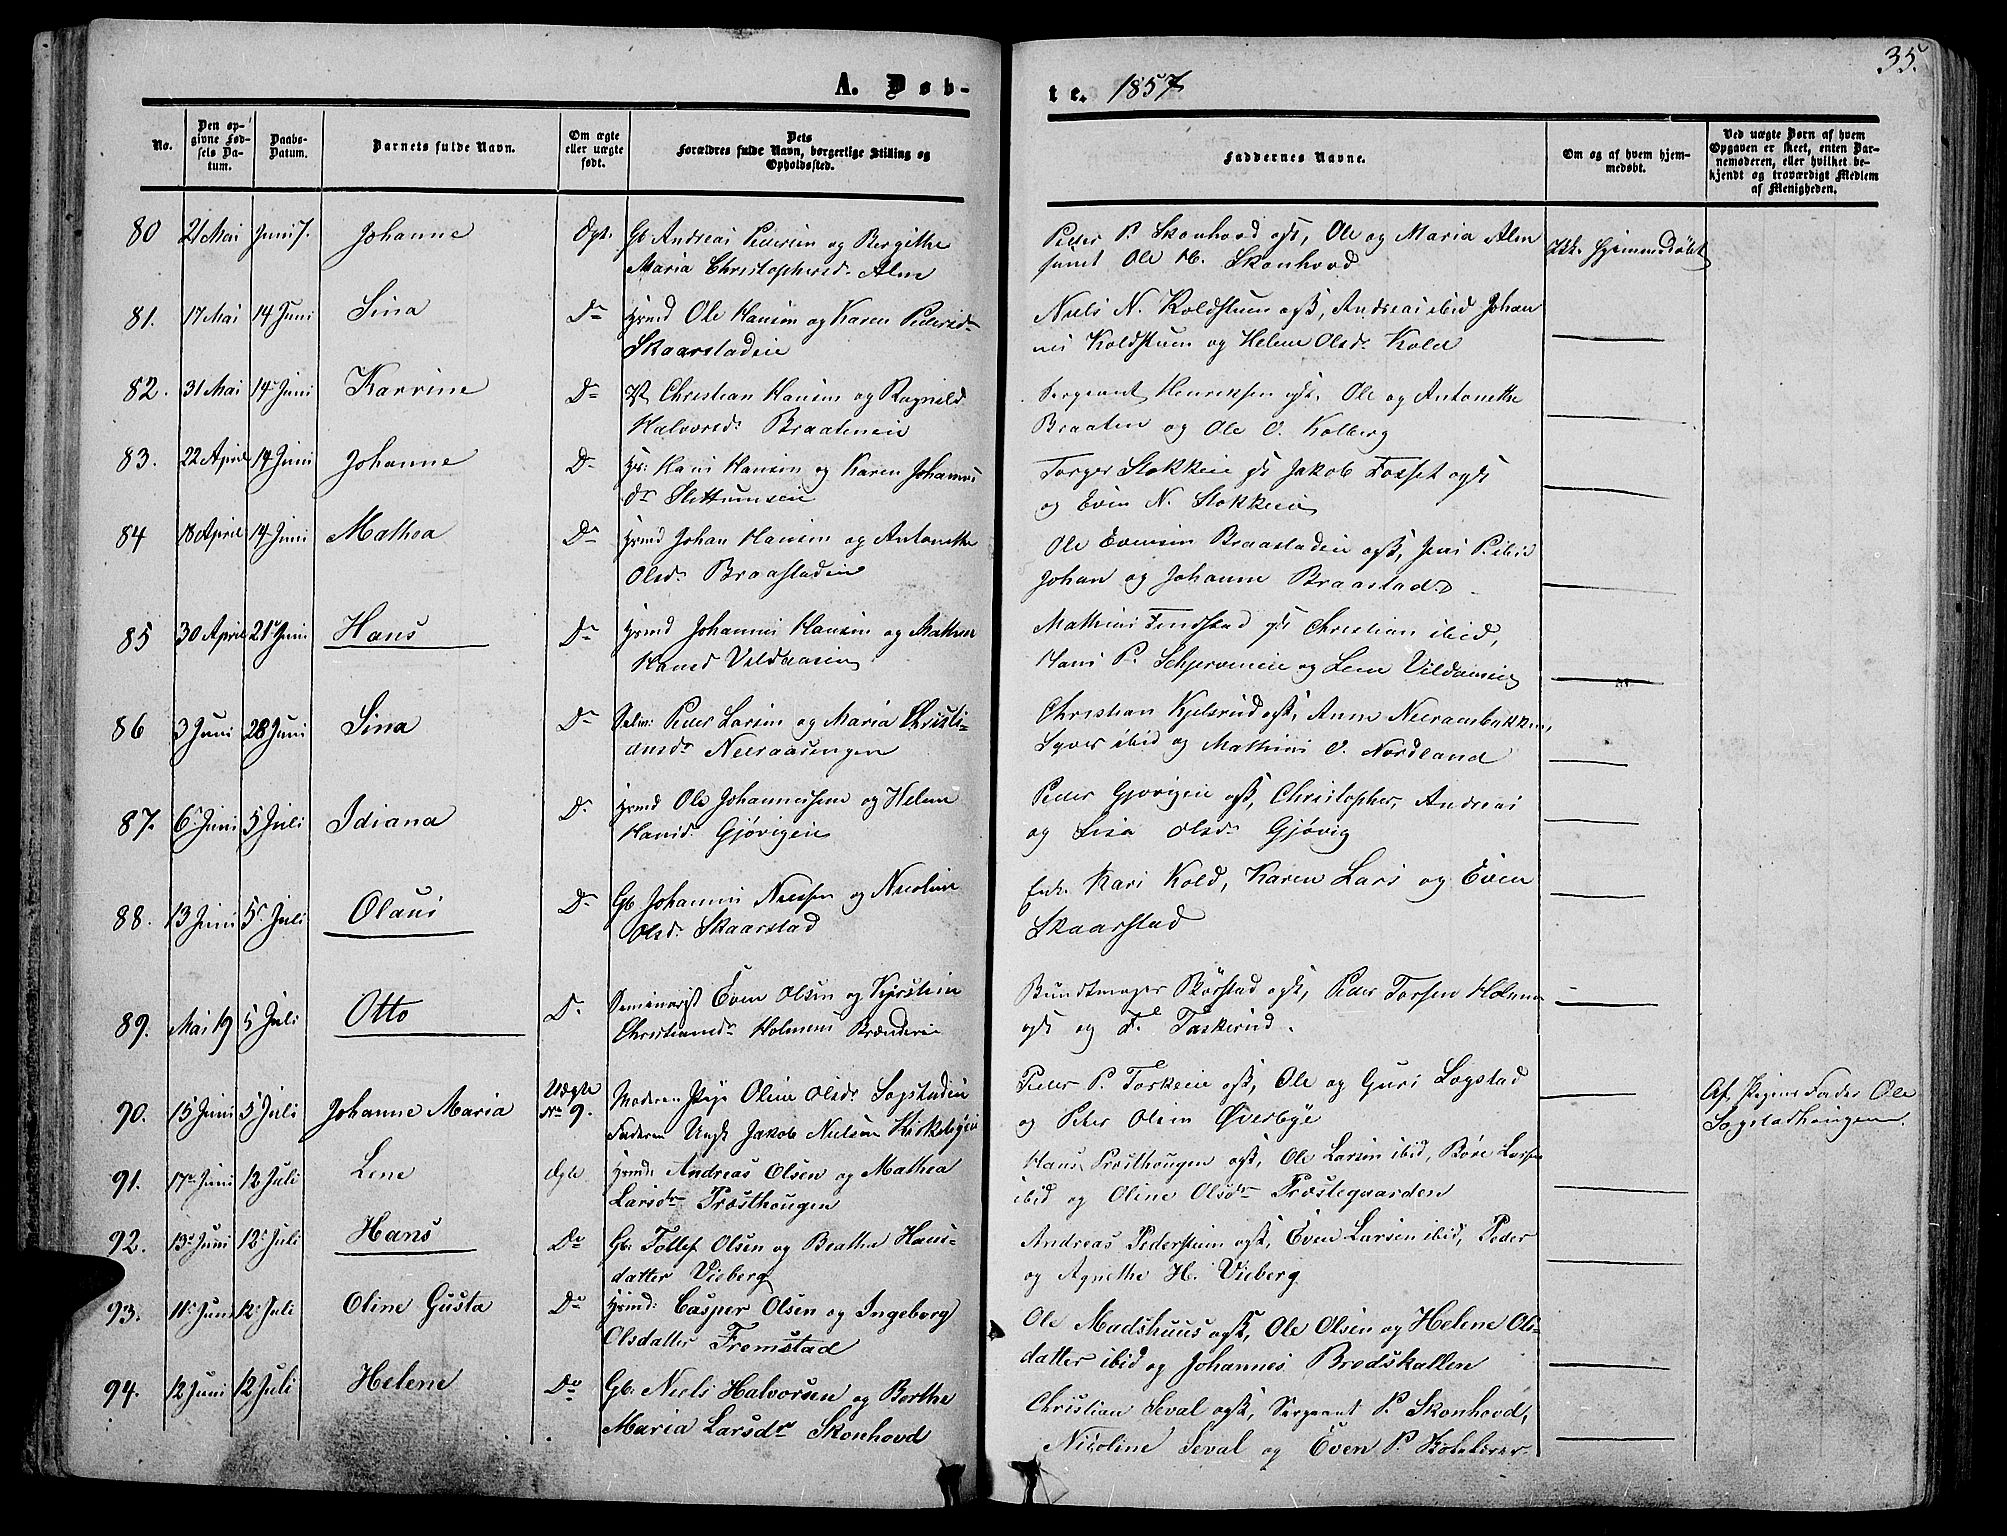 35.
A. Døb-
te. 1857
No.
Den op-
givne Fød-
sels Da-
tum.
Daabs-
Datum.
Barnets fulde Navn.
Om ægte
eller uægte
født.
Dets
Forældres fulde Navn, borgerlige Stilling og
Opholdssted.
Faddernes Navne.
Om og af hvem hjem-
medøbt.
Ved uægte Børn af hvem
Opgaven er skeet, enten Bar-
nemoderen, eller hvilket be-
kjendt og troværdigt Medlem
af Menigheden.
80 21 Mai Juni 7. Johanne Ægt. Gb Andreas Pedersen og Bergithe
Maria Christophersd. Alm
Peder P. Skonhovd ogs, Ole og Maria Alm
samt Ole H. Skonhovd
Ikke Hjemmedøbt
81. 17 Mai 14 Juni Sina Do Hsmd Ole Hansen og Karen Pedersd.
Skaarstadeie
Niels N. Koldstuen ogs, Andreas ibid Johan
nes Koldstuen og Helene Olsdr Kold
82. 31 Mai 14 Juni Karrine Do Christian Hansen og Ragnild
Halvorsdr Braateneie
Sergeant Henriksen ogs. Ole og Antonette
Braaten og Ole O. Kolberg
83. 22 April 14 Juni Johanne Do Hs: Hans Hansen og Karen Johannes
dr Slettumseie
Torger Stokkeie gs Jakob Fosset ogs
og Even N. Stokkeie
84 18 April 14 Juni Mathea Do Hsmd Johan Hansen og Antonette
Olsdr Braastadeie
Ole Evensen Braastadeie ogs, Jens P. ibid
Johan og Johanne Braastad
85 30 April 21 Juni Hans Do Hsmd Johannes Hansen og Mathea
Hansd Vildaasen
Mathias Findstad gs Christian ibid,
Hans P. Schjerveneie og Lene
86 3 Juni 28 Juni Sina Do Peder Larsen og Maria Christi-
ansdr Neeraasengen
Christian Kjelsrud ogs, Anne Neeraasbakken,
Syver ibid og Mathias O. Nordland
87. 6 Juni 5 Juli Idiana Do Hsmd Ole Johannessen og Helene
Hansdr Gjøvigeie
Peder Gjøvigeie ogs, Christopher, Andreas
og Lisa Olsdr Gjøvig
88. 13 Juni 5 Juli Olaus Do Gb. Johannes Nielsen og Nicoline
Olsdr Skaarstad
Enk. Kari Kold, Karen Lars og Even
Skaarstad
89. Mai 19 5 Juli Otto Do Seminarist Even Olsen og Kjerstein
Christiansdr Holmens Brænderie
Bundtmager Skørstad ogs, Peder Torsen Holmen
ogs og F. Taskerud.
90. 15 Juni 5 Juli Johanne Maria Uægte
No 9. Moderen Pige Oline Olsdr Sogstadeie
Faderen Ungk Jakob Nielsen Kirkeligeie
Peder P. Taskeie ogs, Ole og Guri Sogstad
og Peter Olsen Øverbye
Af Pigens Fader Ole
Sogstadhaugen.
91. 17 Juni 12 Juli Lene Ægte Hsmd: Andreas Olsen og Mathea
Larsdr Prosthougen
Hans Prosthougen ogs, Ole Larsen ibid, Børe Larsen
ibid og Oline Olsdr Præstegaarden
92. 13 Juni 12 Juli Hans Do Gb. Tollef Olsen og Beathe Hans-
datter Vieberg
Andreas Pederstuen ogs, Even Larsen ibid, Peder
og Agnethe H. Vieberg
93. 11 Juni 12 Juli Oline Gusta Do Hsmd: Casper Olsen og Ingeborg
Olsdatter Fremstad
Ole Madshuus ogs, Ole Olsen og Helene Ols-
datter ibid og Johannes Bredskallen
94. 12 Juni 12 Juli Helene Do Gb. Niels Halvorsen og Berthe
Maria Larsdr Skonhovd
Christian Seval ogs, Sergeant P. Skonhovd,
Nicoline Seval og Even P.